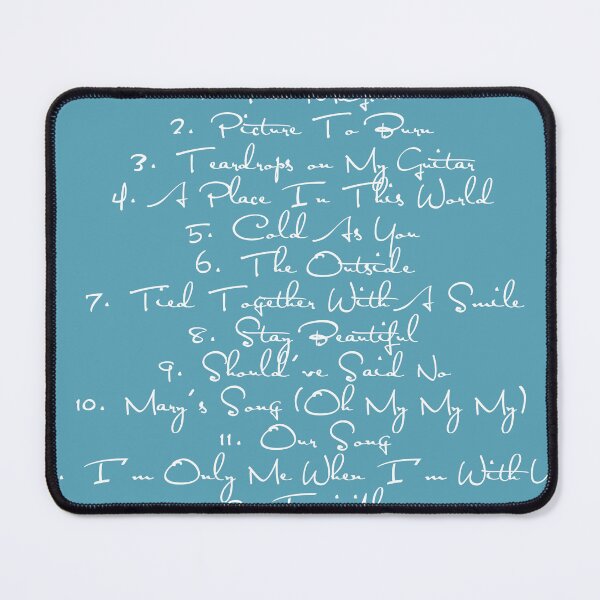 2. Picture To Burn
3. Teardrops on My Guitar
4. A Place In This World
5. Cold As You
6. The Outside
7. Tied Together With A Smile
8. Stay Beautiful
9. Should've Said No
10. Mary's Song (Oh My My My)
11. Our Song
. I'm Only Me When I'm With